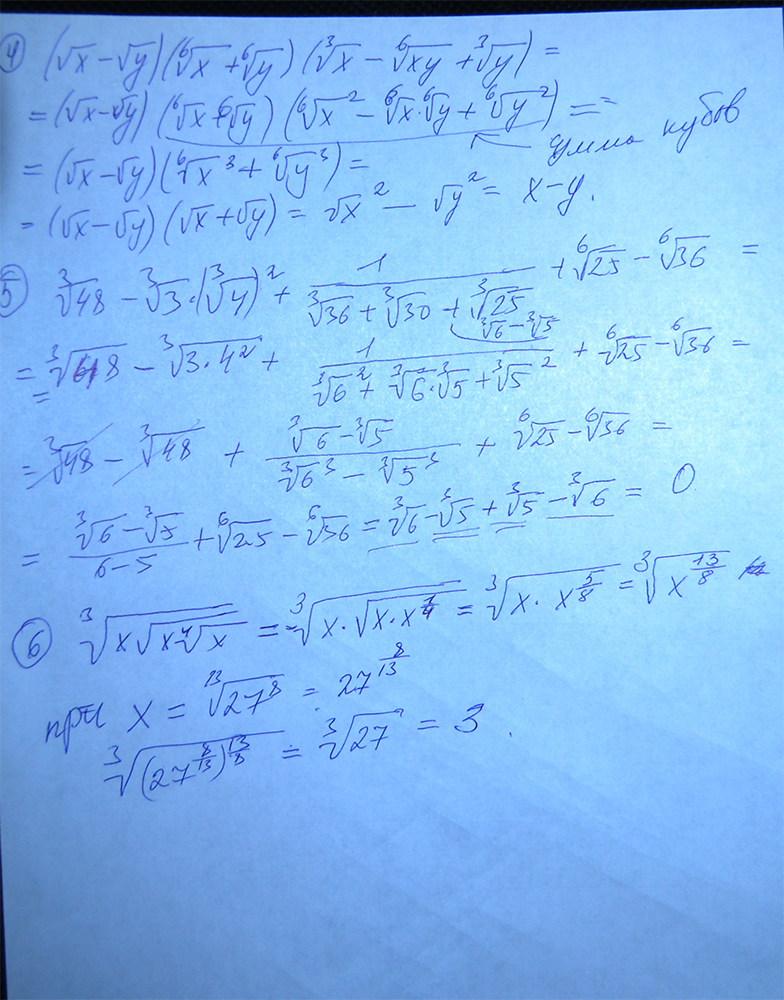 ④ (√x − √y)(⁶√x + ⁶√y)(³√x − ⁶√xy + ³√y) =
= (√x − √y)(⁶√x + ⁶√y)(⁶√x² − ⁶√x · ⁶√y + ⁶√y²) ==
сумма кубов
= (√x − √y)(⁶√x³ + ⁶√y³) =
= (√x − √y)(√x + √y) = √x² − √y² = x − y.
⑤ ³√48 − ³√3 · (³√4)² + 1/(³√36 + ³√30 + ³√25) + ⁶√25 − ⁶√36 =
³√6 − ³√5
= ³√48 − ³√3·4² + 1/(³√6² + ³√6 · ³√5 + ³√5²) + ⁶√25 − ⁶√36 =
= ³√48 − ³√48 + (³√6 − ³√5)/(³√6³ − ³√5³) + ⁶√25 − ⁶√36 =
= (³√6 − ³√5)/(6 − 5) + ⁶√25 − ⁶√36 = ³√6 − ³√5 + ³√5 − ³√6 = 0
⑥ ³√(x√(x⁴√x)) = ³√(x · √(x · x^(1/4))) = ³√(x · x^(5/8)) = ³√(x^(13/8))
при x = ¹³√27⁸ = 27^(8/13)
³√((27^(8/13))^(13/8)) = ³√27 = 3.